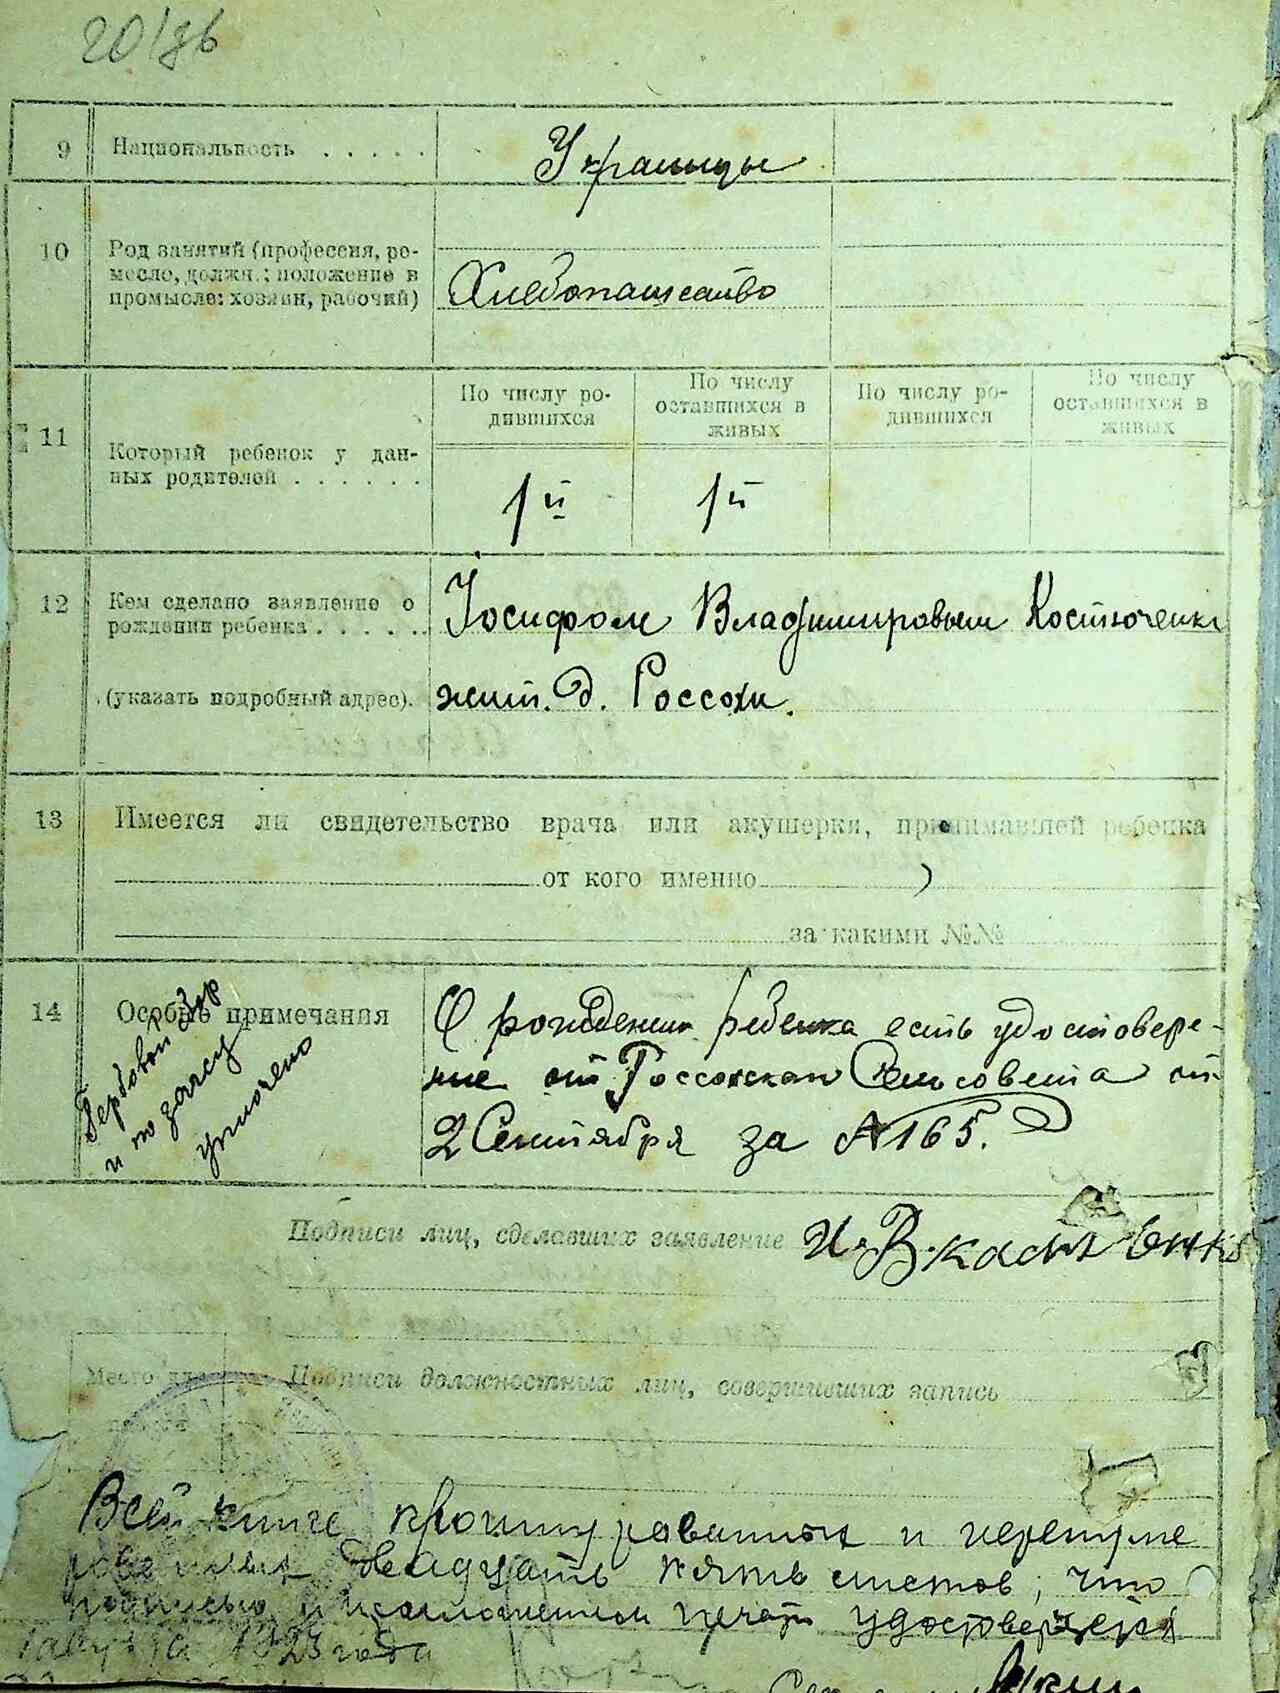 20/зв
9 Национальность . . . . . Украинцы
10 Род занятий (профессия, ре-
месло, должн.; положение в
промысле: хозяин, рабочий) Хлебопашество
11 Который ребенок у дан-
ных родителей . . . . . .
По числу ро-
дившихся
По числу
оставшихся в
живых
По числу ро-
дившихся
По числу
оставшихся в
живых
1й 1й
12 Кем сделано заявление о
рождении ребенка . . . . . .
(указать подробный адрес).
Іосифом Владимировым Костюченко
жит. д. Россохи.
13 Имеется ли свидетельство врача или акушерки, принимавшей ребенка
от кого именно
за какими №№
14 Особые примечания
Гербовой 3р
и по загсу
уплочено
О рождении ребенка есть удостовере-
ние от Россохскан Сельсовета от
2 Сентября за №165.
Подписи лиц, сделавших заявление И.В.Кост енко
Место для
печати
Подписи должностных лиц, совершивших запись
Всей книге пронумерованных и
двадцать пять листов, что
подписью и приложением печати удостоверяется
1 августа 1923 года